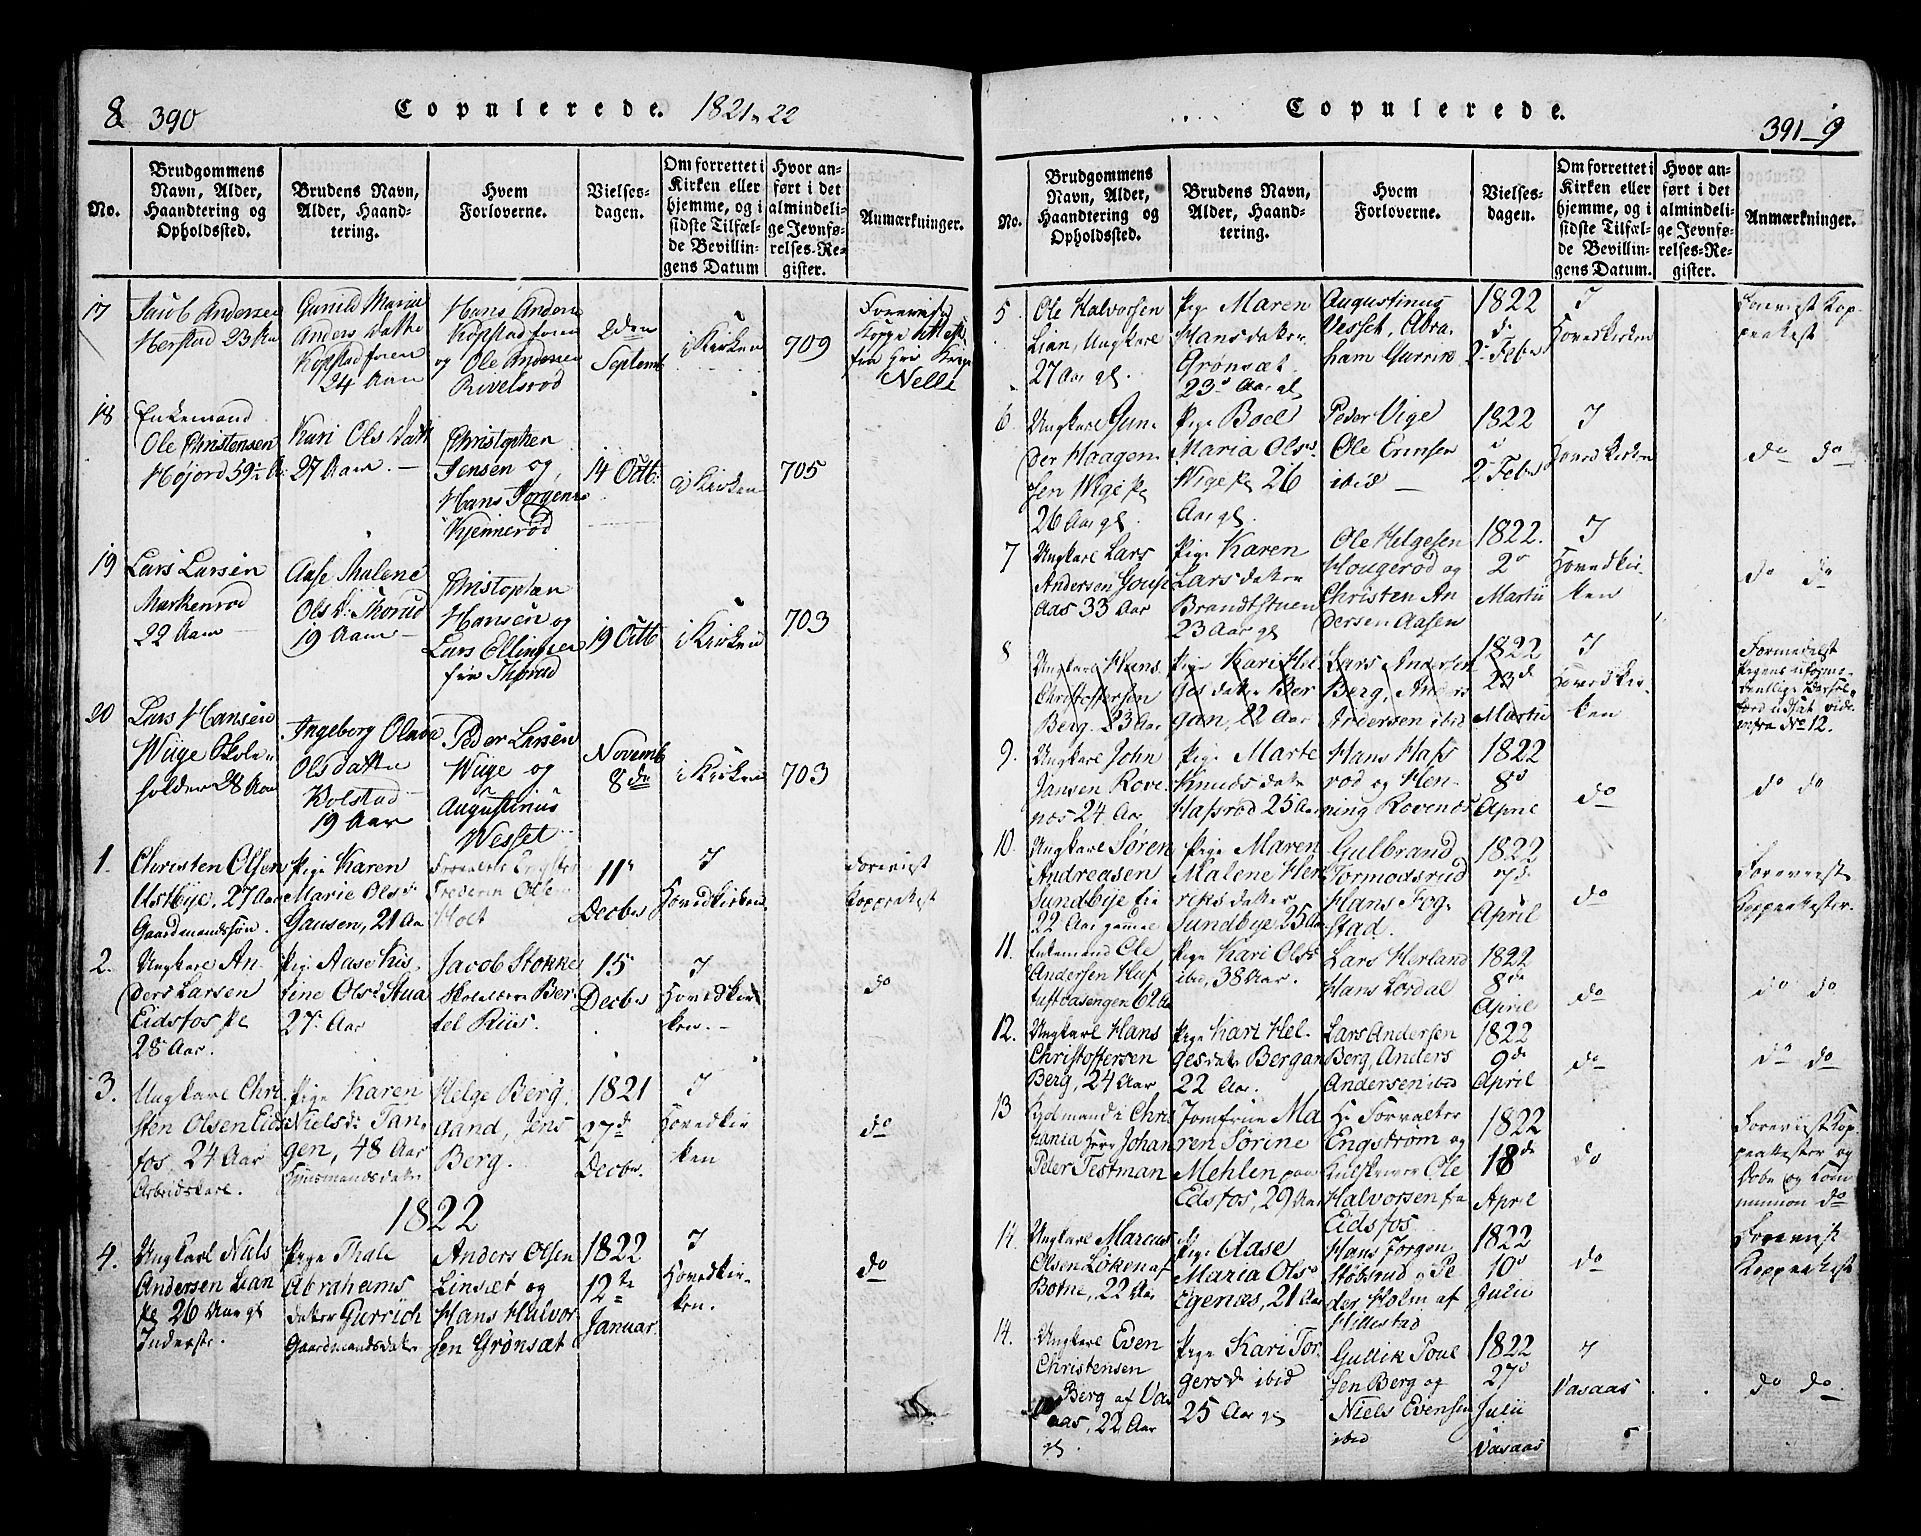 8 390
Copulerede. 1821-22
No.
Brudgommens
Navn, Alder,
Haandtering og
Opholdssted.
Brudens Navn,
Alder, Haand-
tering.
Hvem
Forloverne.
Vielses-
dagen.
Om forrettet i
Kirken eller
hjemme, og i
sidste Tilfæl-
de Bevillin-
gens Datum
Hvor an-
ført i det
almindeli-
ge Jevnfø-
relses-Re-
gister.
Anmærkninger.
17
Jacob Andersen
Herstad 23 Aar
Gunild Maria
Anders Datter
Kopstad
24 Aar
Hans Anders
Kopstad
og Ole Andersen
Rivelsrød
2den
Septemb
i Kirken
709
18
Enkemand
Ole Christensen
Højord 59½ Aar
Kari Ols Datt
27 Aar
Christopher
Jensen og
Hans Jørgens
Kjennerød
14 Octb:
i Kirken
705
19
Lars Larsen
Markenrød
22 Aar
Aase Malene
Olsd: Thorud
19 Aar
Christopher
Hansen og
Lars Ellingsen
fra Thorud
19 Octb
i Kirken
703
20
Lars Hansen
Wiige Skole-
holder 28 Aar
Ingeborg Olava
Olsdatter
Kolstad
19 Aar
Peder Larsen
Wiige og
Augustinus
Wesset
Novemb
8de
i Kirken
703
1.
Christen Olsen
Ustbye, 27 Aar
Gaardmandssøn.
Pige Karen
Marie Olsd
Gausen, 21 Aar
Frederik Olsen
Holt
11
Decbr
I
Hovedkirken
Forevist
Koppeattest
2.
Ungkarl An-
ders Larsen
Eidsfos
28 Aar.
Pige Aase Kis-
tine Olsd Stua
27 Aar
Jacob Stokke
Skolelærer Ber-
tel Riis.
15
Decbr
I
Hovedkir-
ken.
do
3.
Ungkarl Chri-
sten Olsen Eids-
fos, 24 Aar
Arbeidskarl.
Pige Karen
Nielsd: Tan-
gen, 48 Aar
Huusmandsdatter
Helge Berg
aand, Jens
Berg.
1821
27d
Decbr.
I
Hovedkir
ken
do
1822
4.
Ungkarl Niels
Andersen Lian
26 Aar gl
Inderste.
Pige Thale
Abrahams
datter Gurrich
Gaardmandsdatter
Anders Olsen
Linsæt og
Hans Halvor
sen Grønsæt
1822
12te
Januar.
I
Hovedkir-
ken.
do
Copulerede.
391-9
No.
Brudgommens
Navn, Alder,
Haandtering og
Opholdssted.
Brudens Navn,
Alder, Haand-
tering.
Hvem
Forloverne.
Vielses-
dagen.
Om forrettet i
Kirken eller
hjemme, og i
sidste Tilfæl-
de Bevillin-
gens Datum.
Hvor an-
ført i det
almindeli-
ge Jevnfø-
relses-Re-
gister.
Anmærkninger.
5
Ole Halvorsen
Lian, Ungkarl
27 Aar gl.
Pige Maren
Hansdatter
Grønsæt
23 Aar gl
Augustinus
Vesset, Abra-
ham Gurrik
1822
d
2 Febr
I
Hovedkirken
Forevist Kop-
peattest
6
Ungkarl Gun-
der Haagen-
sen Wige
26 Aar gl
Pige Boel
Maria Olsd
Wige 26
Aar gl.
Peder Vige
Ole Ericsen
ibid
1822
2 Febr
I
Hovedkirken
do do
7
Ungkarl Lars
Andersen
aas 33 Aar
Pige Karen
Larsdatter
Brandtstuen
23 Aar gl
Ole Helgesen
Hougerød og
Christen An
dersen Aasen
1822.
2
Martii
I
Hovedkir-
ken
do do
8
Ungkarl Hans
Christoffersen
Berg, 23 Aar
Pige Kari Hel
gesdatter Ber
gan, 22 Aar
Lars Andersen
Berg, Anders
Andersen ibid
1822
23d
Martii
I
Hovedkir-
ken
Formedelst
Pigens
udsat vide
infra No 12.
9.
Ungkarl John
Jansen Rove-
næs 24 Aar
Pige Marte
Knudsdatter
Hassrød 25 Aar
Hans Hass
rød og Hen-
ning Rovenæs
1822
8d
April
do
do do
10.
Ungkarl Søren
Andreasen
Sundbye
22 Aar gammel
Pige Maren
Malene Hen
riksdatter
Sundbye 25 Aar
Gulbrand
Tormodsrud
Hans Fog-
stad.
1822
7d
April
do
Foreviist
Koppeattester.
11.
Enkemand Ole
Andersen
62 Aar
Pige Kari Olsd
ibid, 38 Aar.
Lars Herland
Hans Lordal
1822
8de
April
do
do do
12.
Ungkarl Hans
Christoffersen
Berg, 24 Aar
Pige Kari Hel-
gesdatter Bergan
22 Aar.
Lars Andersen
Berg, Anders
Andersen ibid
1822
9de
April
do
do do
13
i Chris
tiania Herr Johan
Peter Testman
Jomfrue Ma
ren Sørine
Mehlen paa
Eidsfos, 29 Aar
Hr Forvalter
Engstrøm og
Ole
Halvorsen fra
Eidsfos
1822
18de
April
do
Forevist Kop
peattester og
Døbe og Com
munion do
14.
Ungkarl Marcus
Olsen Løken af
Botne, 22 Aar
Pige Aase
Maria Olsd
Egenæs, 21 Aar
Hans Jørgen
Støbsrud og Pe
der Holm af
Hillestad
1822
10d
Julii
do
Forevist
Koppeattest
14.
Ungkarl Even
Christensen
Berg af Vas
aas, 22 Aar
gl.
Pige Kari Tor-
gersd ibid
25 Aar gl
Gullik Poul
sen Berg og
Niels Evensen
ibid
1822
27d
Julii
Vasaas
I
Vasaas
do do